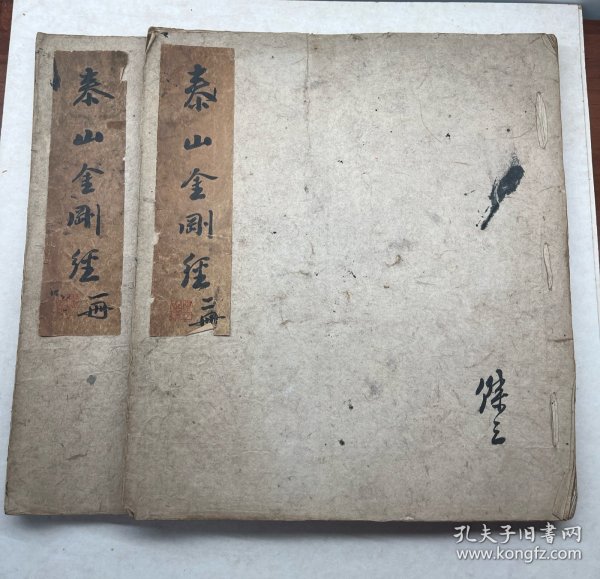 泰山金剛經 一冊
泰山金剛經 二冊
孔夫子旧书网
www.kongfz.com